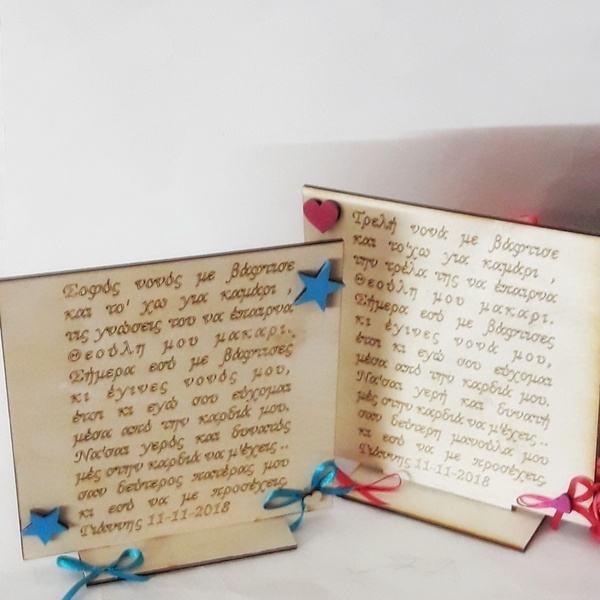 Σοφός νονός με βάφτισε
και το' χω για καμάρι ,
τις γνώσεις του να έπαιρνα
Θεούλη μου μακαρι.
Σήμερα εσύ με βάφτισες
κι έγινες νονός μου,
έτσι κι εγώ σου εύχομαι
μέσα από την καρδιά μου.
Να'σαι γερός και δυνατός
μές στην καρδιά να μ'έχεις ..
σαν δεύτερος πατέρας μου
κι εσύ να με προσέχεις
Γιάννης 11-11-2018
Τρελή νονά με βάφτισε
και το'χω για καμάρι ,
την τρέλα της να έπαιρνα
Θεούλη μου μακαρι.
Σήμερα εσύ με βάφτισες
κι έγινες νονά μου,
έτσι κι εγώ σου εύχομαι
μέσα από την καρδιά μου.
Να'σαι γερή και δυνατή
μές στην καρδιά να μ'έχεις..
σαν δεύτερη μανούλα μου
κι εσύ να με προσέχεις
Γιάννης 11-11-2018